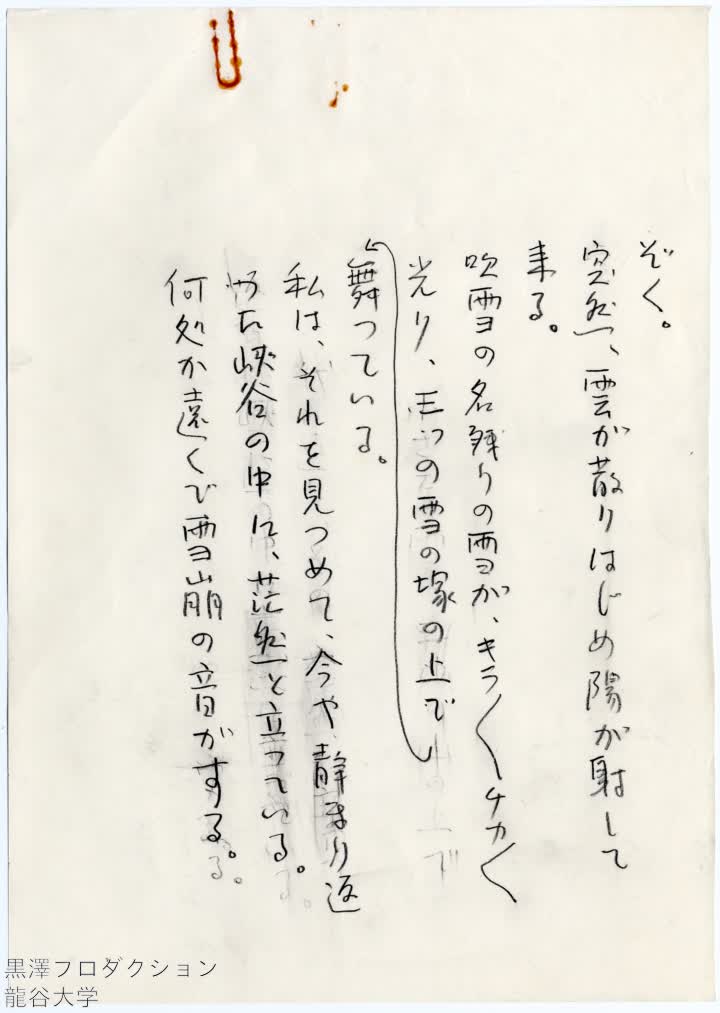 ぞく。
突然、雲が散りはじめ陽が射して
来る。
吹雪の名残りの雪が、キラ〱チカ〱
光り、三つの雪の塚の上で
舞っている。
私は、それを見つめて、今や静まり返
った峡谷の中に、茫然と立っている。
何処か遠くで雪崩の音がする。
黒澤プロダクション
龍谷大学